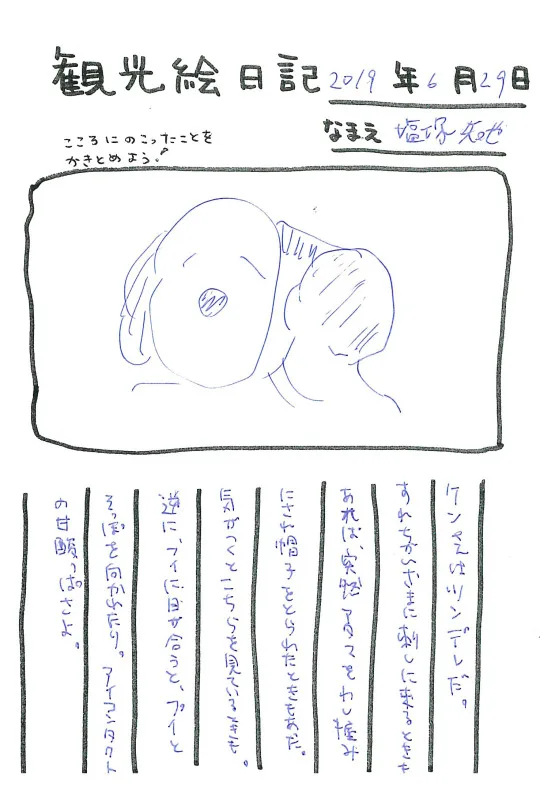 観光絵日記 2019年6月29日
なまえ 塩塚 矢池
こころにのこったことを
かきとめよう!
ケンさんはツンデレだ。
すれちがいざまに刺しに来るときも
あれば、突然アタマをわし掴み
にされ帽子をとられたときもあった。
気がつくとこちらを見ているときも。
逆に、フイに目が合うと、プイと
そっぽを向かれたり。アイコンタクト
の甘酸っぱさよ。